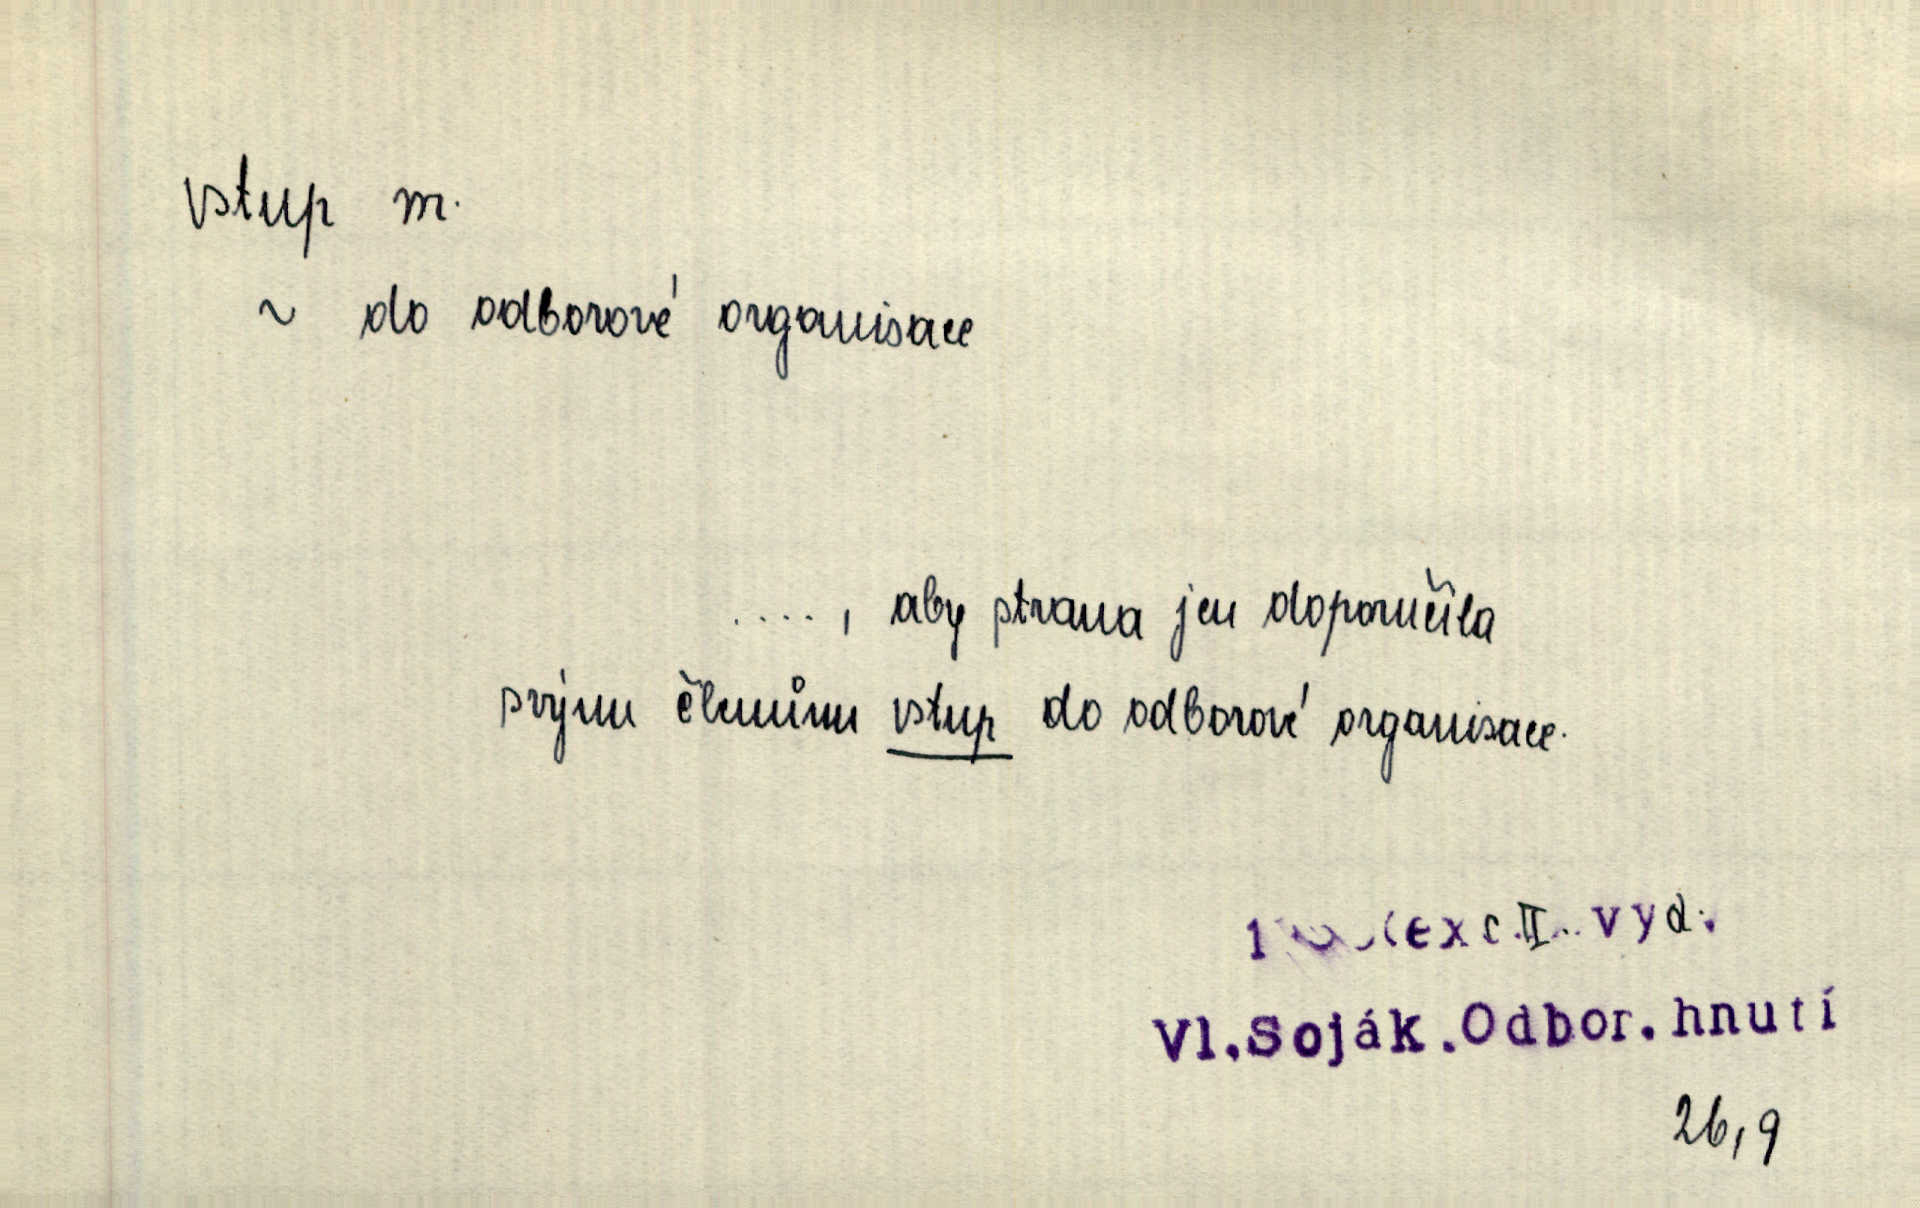 vstup m.
~ do odborové organisace
...., aby strana jen doporučila
svým členům vstup do odborové organisace.
exc. II. vyd.
Vl. Soják. Odbor. hnutí
26,9